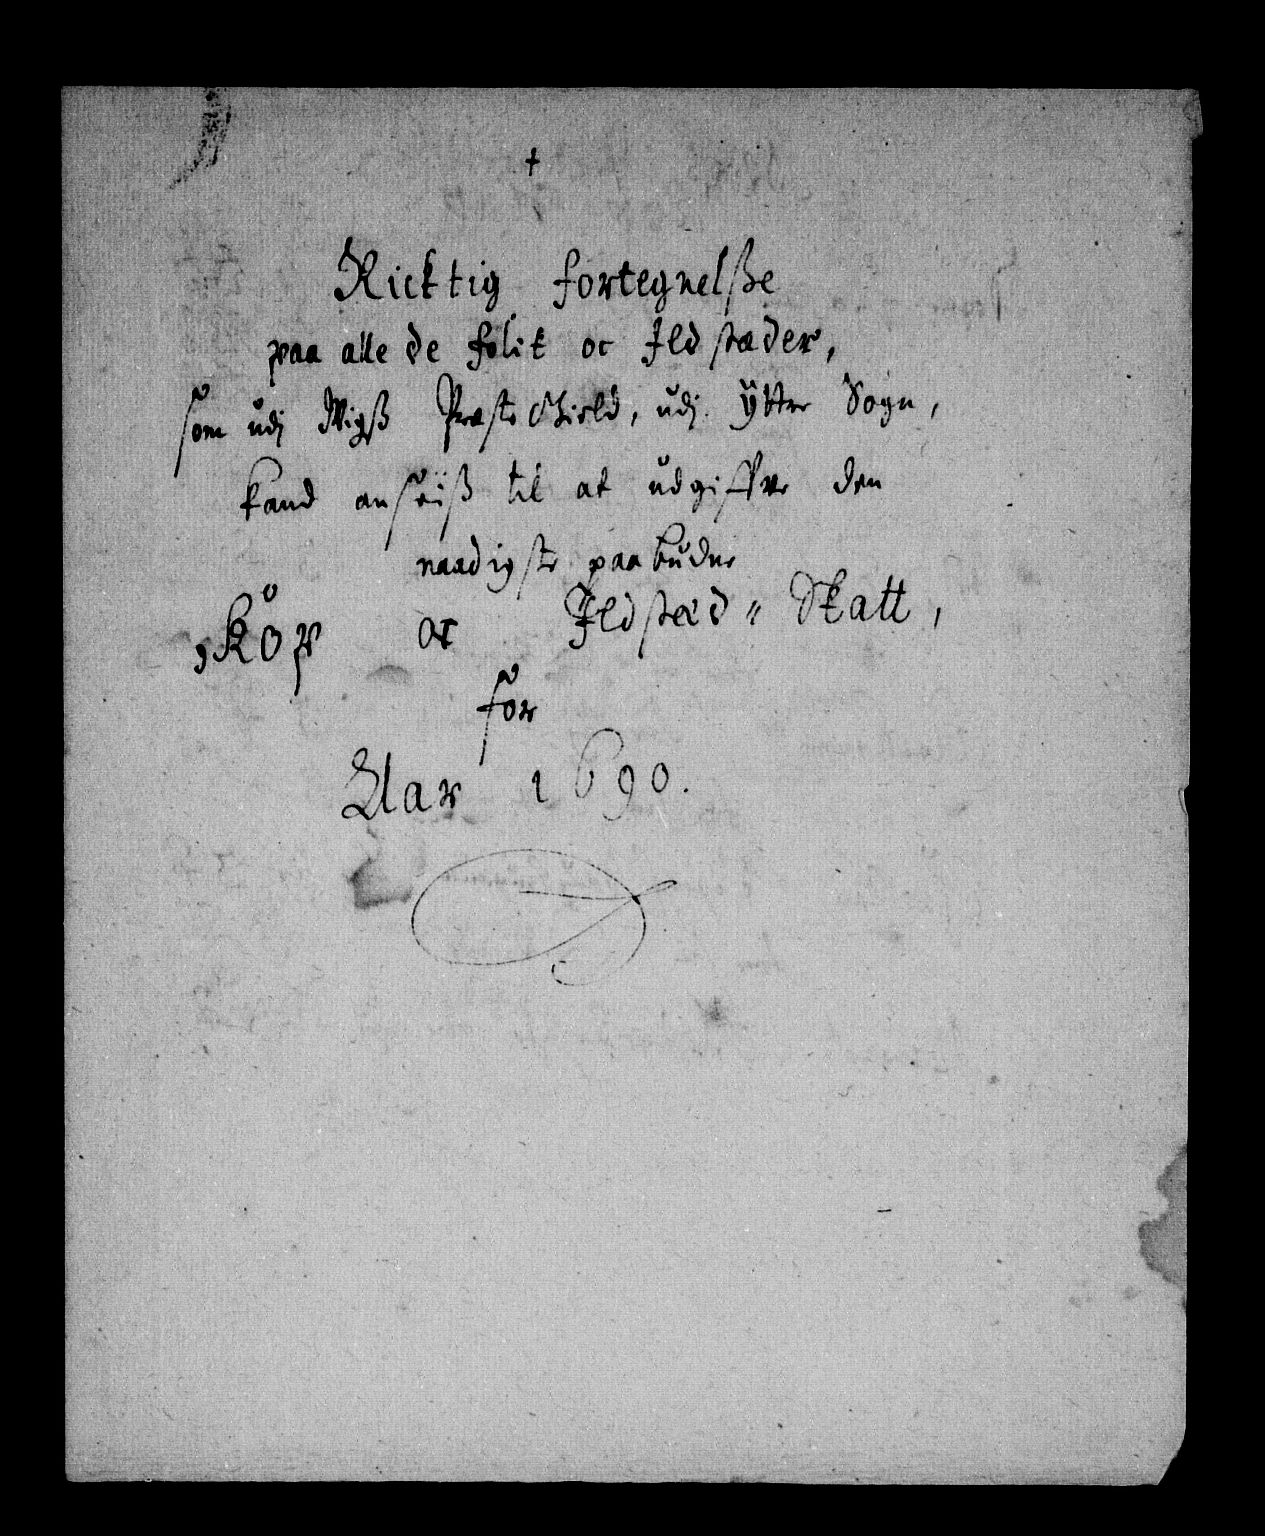 +
Ricktig fortegnelsße
paa alle de folck oc Jldstæder,
som udj Wigß Præstegield, udj Ytter Sogn,
kand ansëiß til at udgiffve den
naadigste paabudne
Kop oc Jldstæd〃 Skatt,
for
Aar 1690.